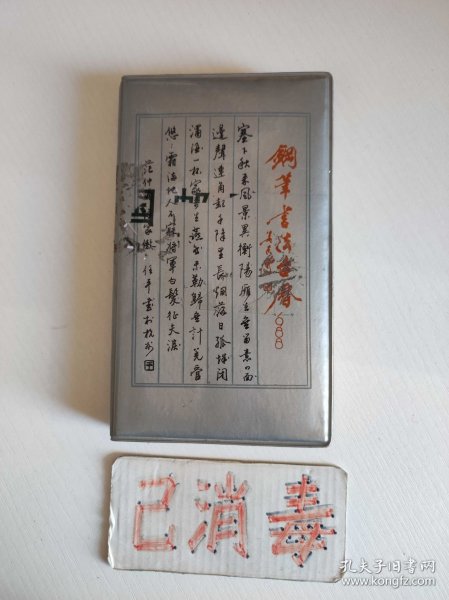 鋼筆書法臺曆
塞下秋來風景異衡陽雁去無留意四面
邊聲連角起千嶂里長煙落日孤城閉
濁酒一杯家萬里燕然未勒歸無計羌管
悠〻霜滿地人不寐將軍白髮征夫淚
范仲家傲任平書於杭州
已消毒
孔夫子旧书网
www.kongfz.com